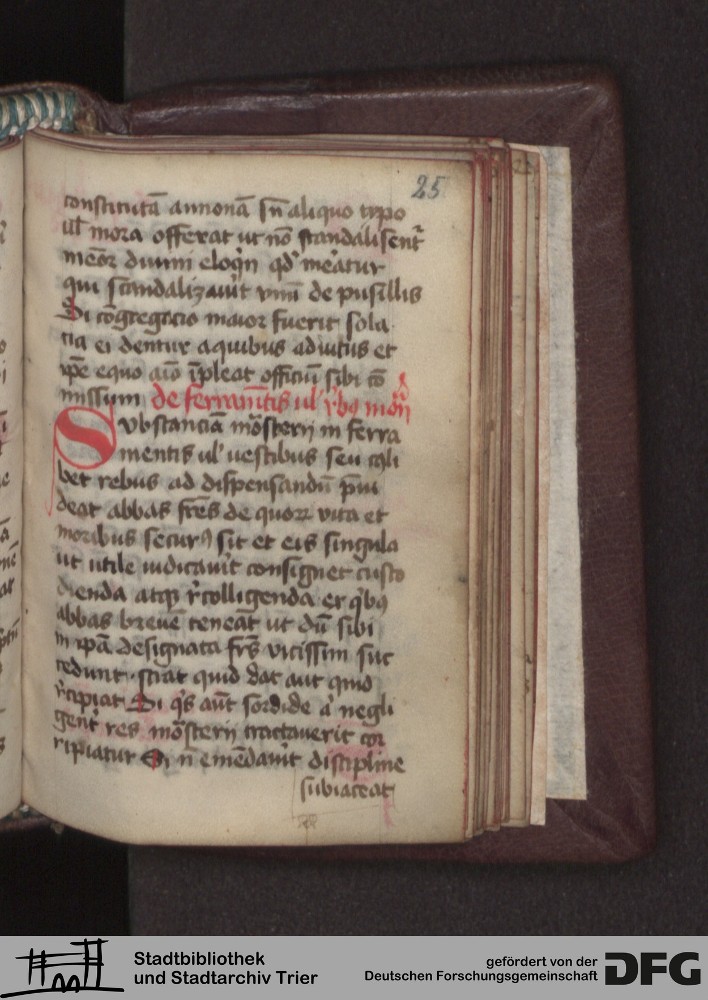 25
constitutā annonā sn̄ aliquo typo
ul̄ mora offerat ut nō scandalisent᷑
meōr diuini eloq̇n qd' meatur
qui scandalizauīt vnū de pusillis
Si cōgregacio maior fuerit sola
tia ei dentur a quibus adiutus et
ip̄e equo aīo īpleat officiū sibi cō
missum de ferramētis ul' r̄bꝯ mōrij
Substanciā mōsterij in ferra
mentis ul' uestibus seu q̇li
bet rebus ad dispensandū p̄ui
deat abbas fr̄es de quoꝝ vita et
moribus securꝯ sit et eis singula
ut utile iudicauīt consignet custo
dienda atqꝫ r̄colligenda ex q̇bꝯ
abbas breuē teneāt ut dū sibi
in ip̄a designata fr̄s vicissim suc
cedunt. sciat quid dat aut quid
r̄cipiat Si q̇s aūt sordide a' negli
gent' res mōsterij tractauerit cor
ripiatur Si n̄ emēdauīt discipline
subiaceat
Stadtbibliothek
und Stadtarchiv Trier
gefördert von der
Deutschen Forschungsgemeinschaft
DFG